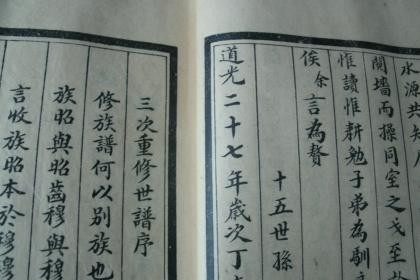 水源共
鬩墻而操同室之戈至
惟讀惟耕勉子弟為馴
俟余言為贅
十五世孫
道光二十七年歲次丁
三次重修世譜序
修族譜何以別族也
族昭與昭齒穆與穆
言收族昭本於穆穆